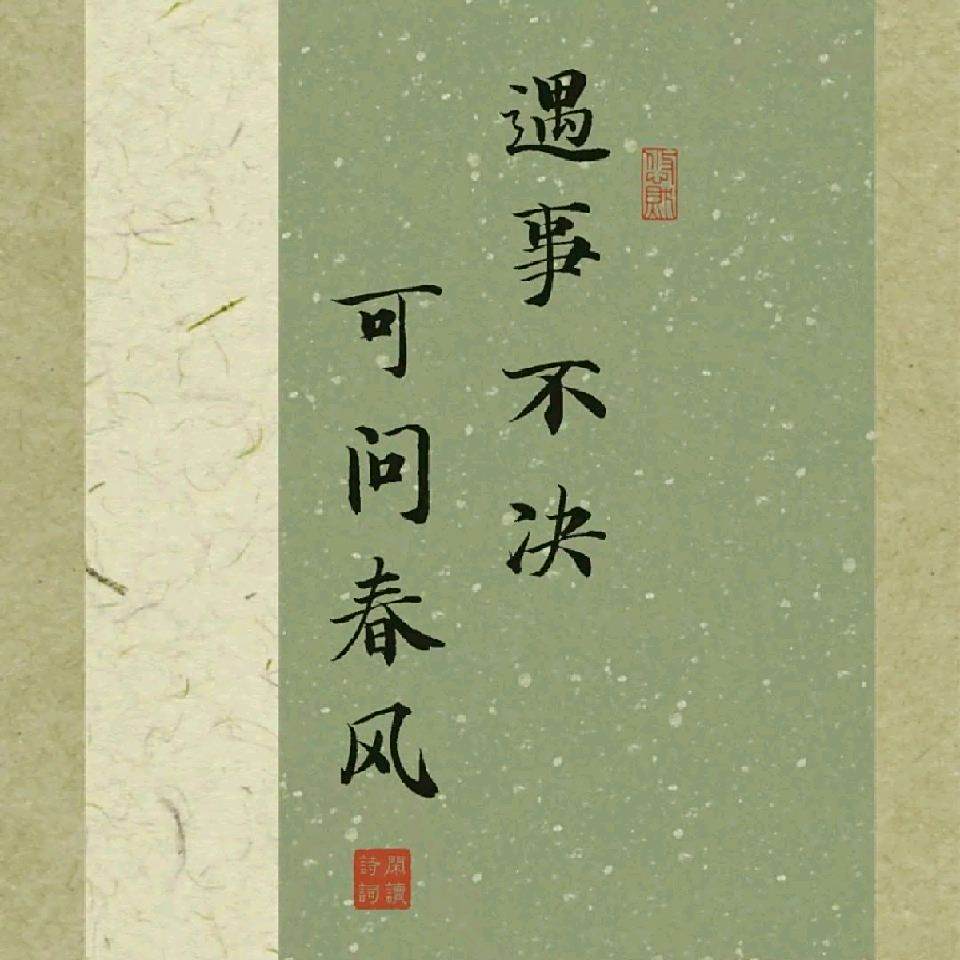 遇事不决
可问春风
閑讀
詩詞